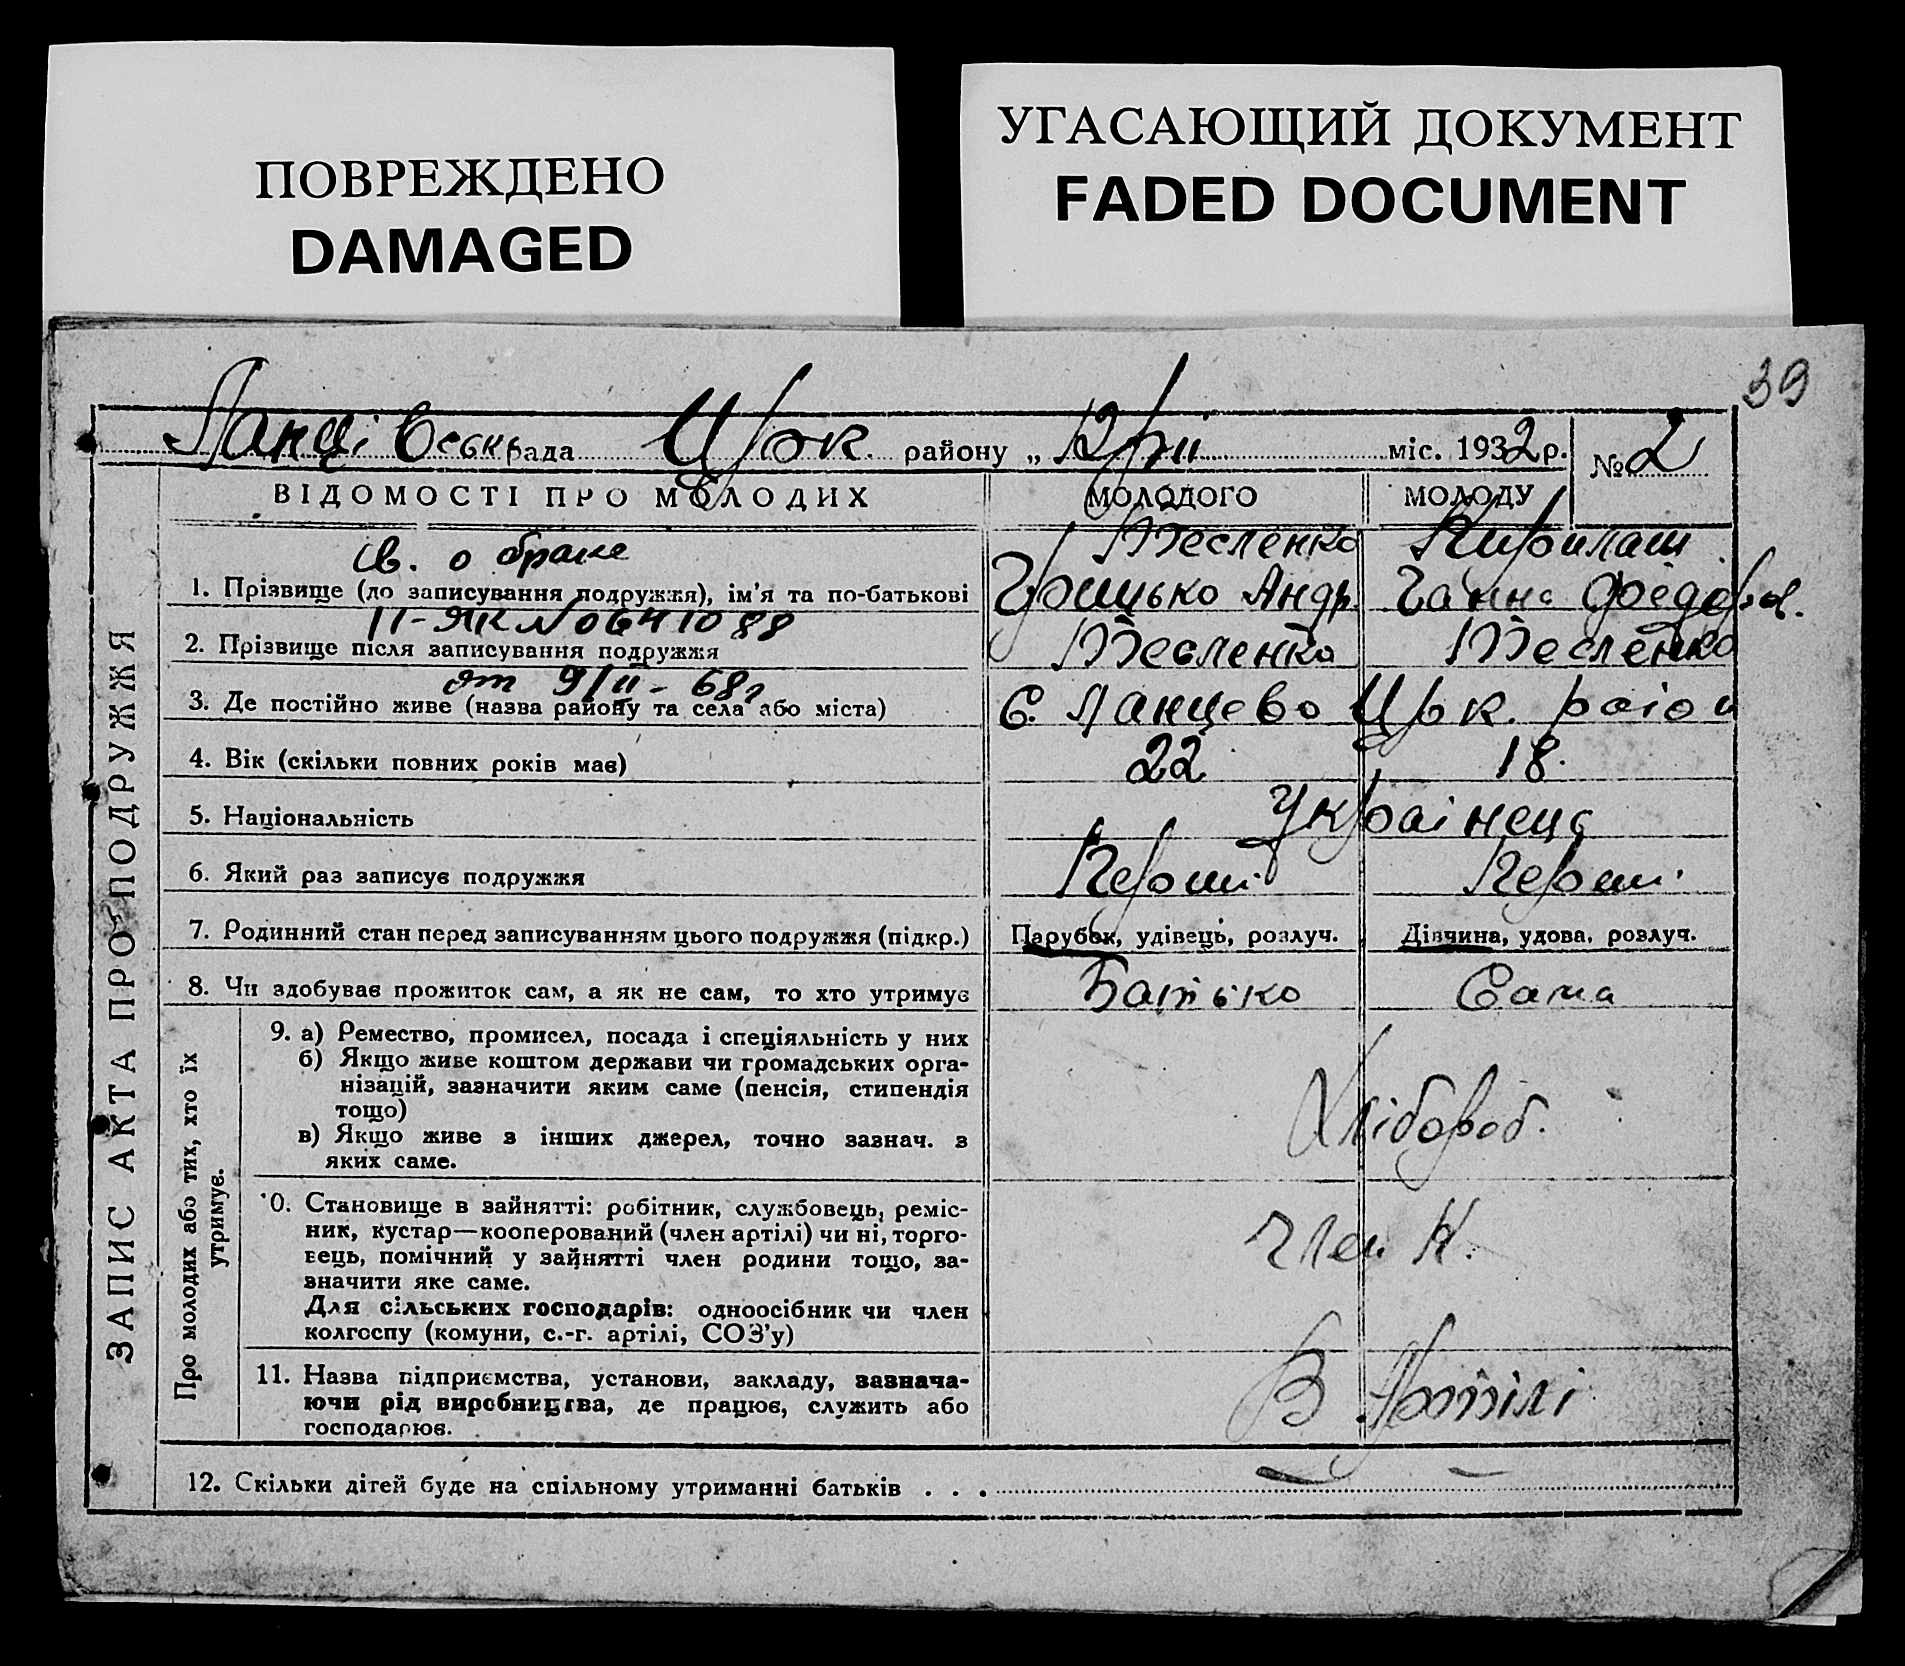 ПОВРЕЖДЕНО
DAMAGED
УГАСАЮЩИЙ ДОКУМЕНТ
FADED DOCUMENT
39
рада району „ 12/ІІІ міс. 1932 р. № 2
ВІДОМОСТІ ПРО МОЛОДИХ МОЛОДОГО МОЛОДУ
ЗАПИС АКТА ПРО ПОДРУЖЖЯ
св. о браке Тесленко Кирилаш
1. Прізвище (до записування подружжя), ім'я та по-батькові Грицько Андр. Ганна Федоров.
ІІ-ЯК № 0641088
2. Прізвище після записування подружжя Тесленко Тесленко
от 9/ІІ- 68г
3. Де постійно живе (назва району та села або міста) С. Ланцево Црк. район
4. Вік (скільки повних років має) 22 18.
5. Національність Українець
6. Який раз записує подружжя Перши Перши.
7. Родинний стан перед записуванням цього подружжя (підкр.) Парубок, удівець, розлуч. Дівчина, удова, розлуч.
8. Чи здобуває прожиток сам, а як не сам, то хто утримує Батько Сама
Про молодих або тих, хто їх утримує.
9. а) Ремество, промисел, посада і спеціяльність у них
б) Якщо живе коштом держави чи громадських орга-
нізацій, зазначити яким саме (пенсія, стипендія
тощо) Хлібороб.
в) Якщо живе з інших джерел, точно зазнач. з
яких саме.
10. Становище в зайнятті: робітник, службовець, реміс-
ник, кустар—кооперований (член артілі) чи ні, торго-
вець, помічний у зайнятті член родини тощо, за- Член К.
значити яке саме.
Для сільських господарів: одноосібник чи член
колгоспу (комуни, с.-г. артілі, СОЗ'у)
11. Назва підприємства, установи, закладу, зазнача-
ючи рід виробництва, де працює, служить або В Артілі
господарює.
12. Скільки дітей буде на спільному утриманні батьків . . . — —